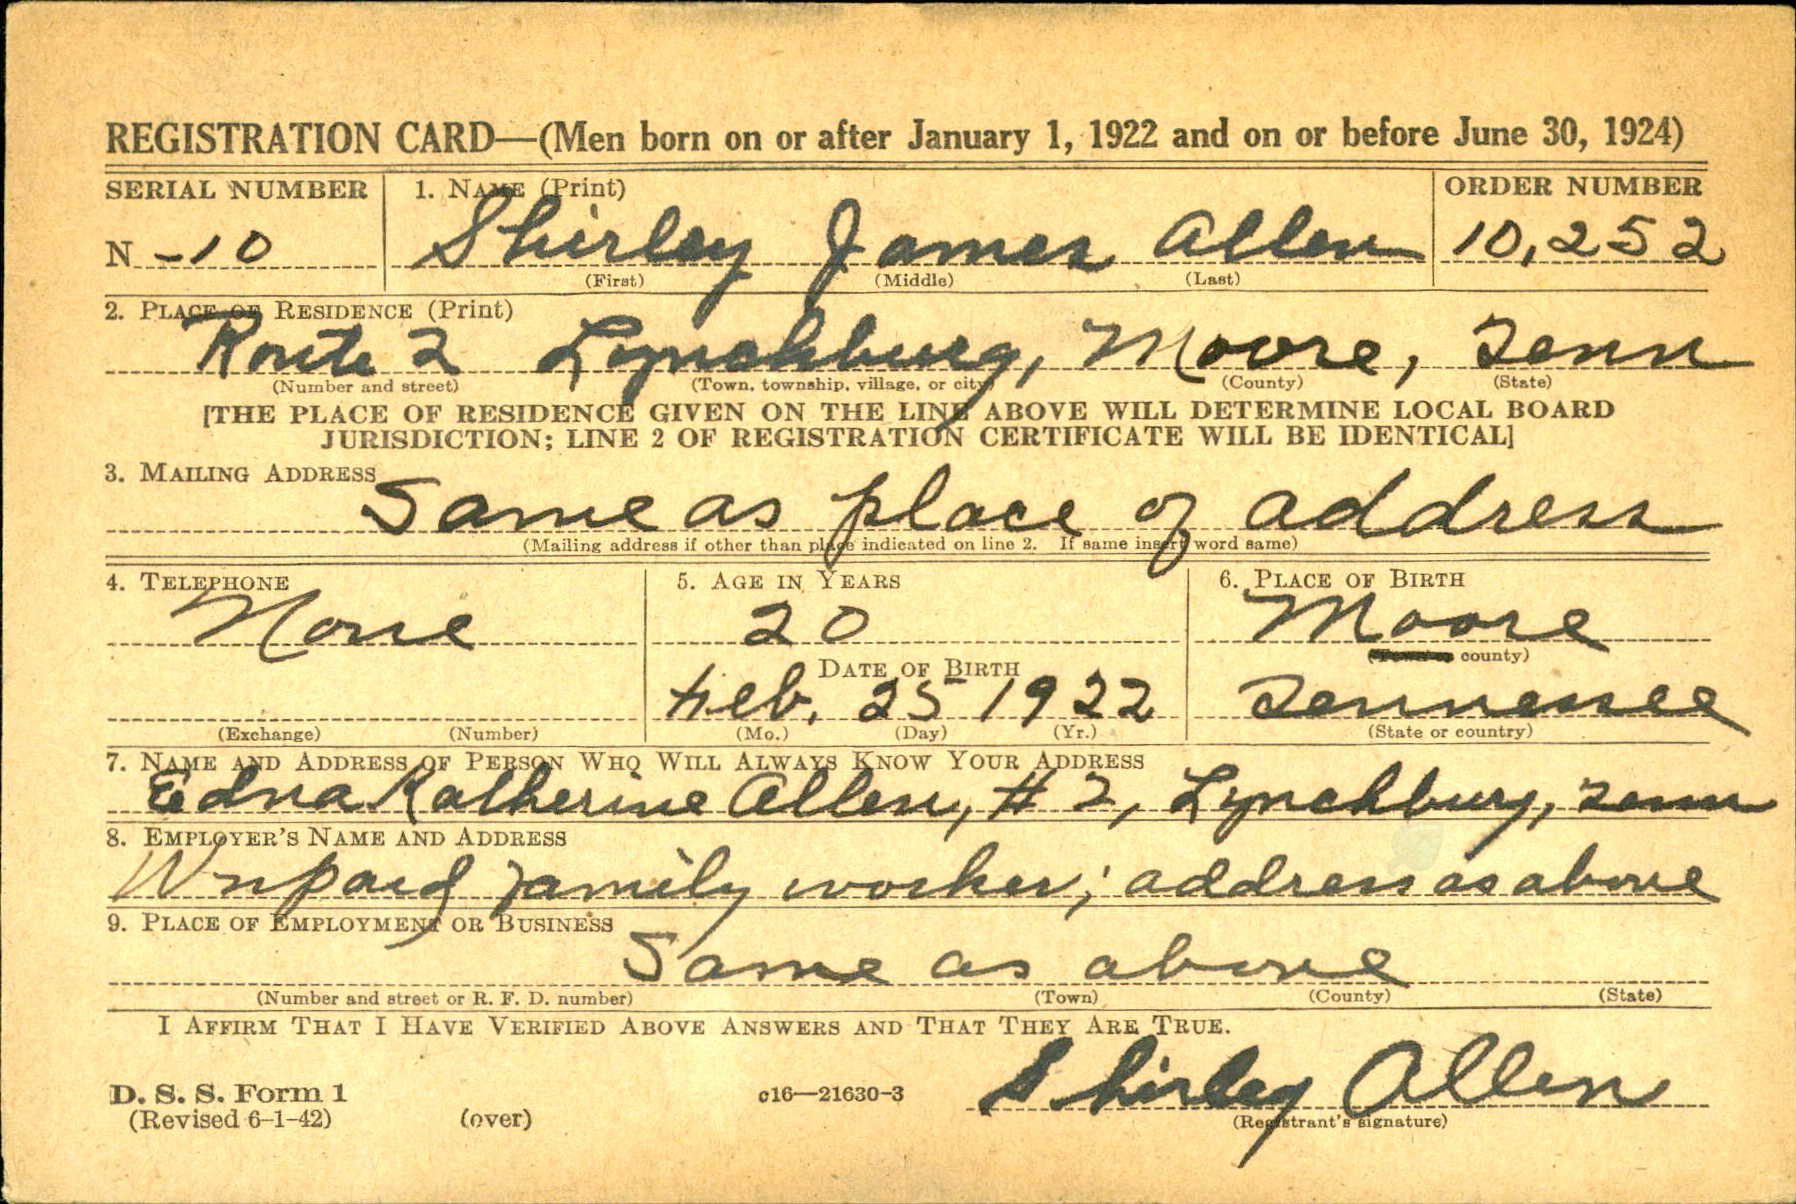 REGISTRATION CARD—(Men born on or after January 1, 1922 and on or before June 30, 1924)
SERIAL NUMBER 1. NAME (Print) ORDER NUMBER
N -10 Shirley James Allen 10,252
(First) (Middle) (Last)
2. PLACE OF RESIDENCE (Print)
Route 2 Lynchburg, Moore, Tenn
(Number and street) (Town, township, village, or city) (County) (State)
[THE PLACE OF RESIDENCE GIVEN ON THE LINE ABOVE WILL DETERMINE LOCAL BOARD
JURISDICTION; LINE 2 OF REGISTRATION CERTIFICATE WILL BE IDENTICAL]
3. MAILING ADDRESS
Same as place of address
(Mailing address if other than place indicated on line 2. If same insert word same)
4. TELEPHONE 5. AGE IN YEARS 6. PLACE OF BIRTH
None 20 Moore
(Town or county)
DATE OF BIRTH
Feb. 25 1922 Tennessee
(Exchange) (Number) (Mo.) (Day) (Yr.) (State or country)
7. NAME AND ADDRESS OF PERSON WHO WILL ALWAYS KNOW YOUR ADDRESS
Edna Katherine Allen, # 2, Lynchburg, Tenn
8. EMPLOYER'S NAME AND ADDRESS
Unpaid family worker; address as above
9. PLACE OF EMPLOYMENT OR BUSINESS
Same as above
(Number and street or R. F. D. number) (Town) (County) (State)
I AFFIRM THAT I HAVE VERIFIED ABOVE ANSWERS AND THAT THEY ARE TRUE.
D. S. S. Form 1 c16—21630-3 Shirley Allen
(Revised 6-1-42) (over) (Registrant's signature)